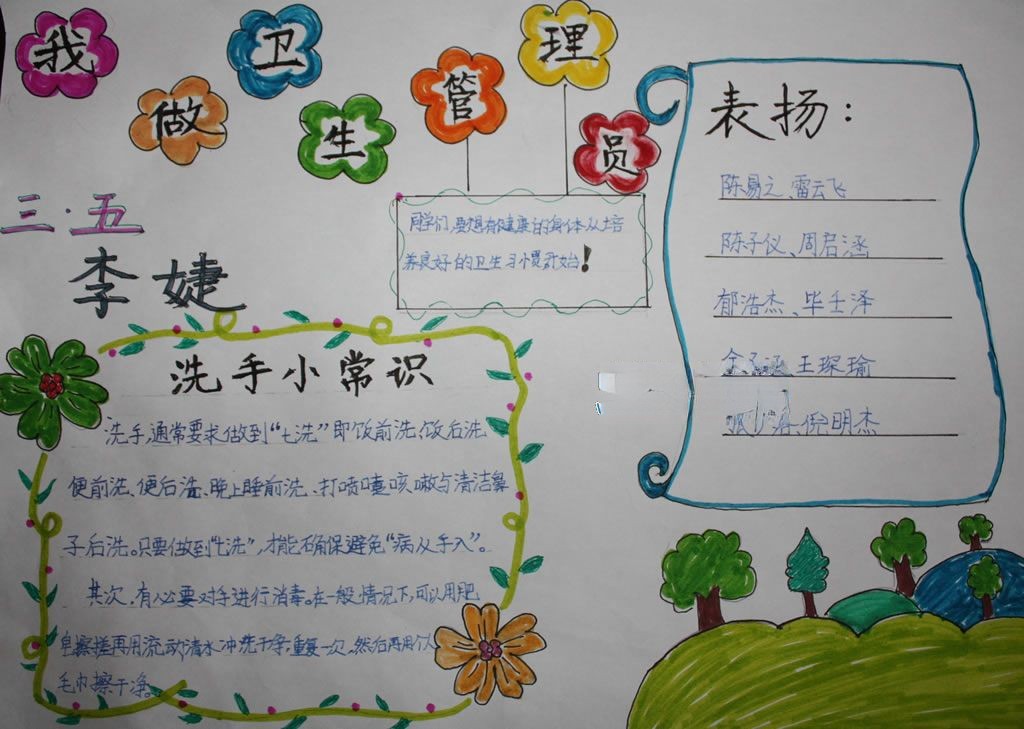 我做卫生管理员
三·五
李婕
同学们,要想有健康的身体从培
养良好的卫生习惯开始!
表扬:
陈易之、雷云飞
陈子仪、周启涵
郁浩杰、毕士泽
王琛瑜
倪明杰
洗手小常识
洗手,通常要求做到“七洗”即饭前洗、饭后洗
便前洗、便后洗、晚上睡前洗、打喷嚏咳嗽与清洁鼻
子后洗。只要做到“七洗”,才能确保避免“病从手入”。
其次,有必要对手进行消毒。在一般情况下,可以用肥
皂擦搓再用流动清水冲洗干净,重复一次,然后再用个人
毛巾擦干净。